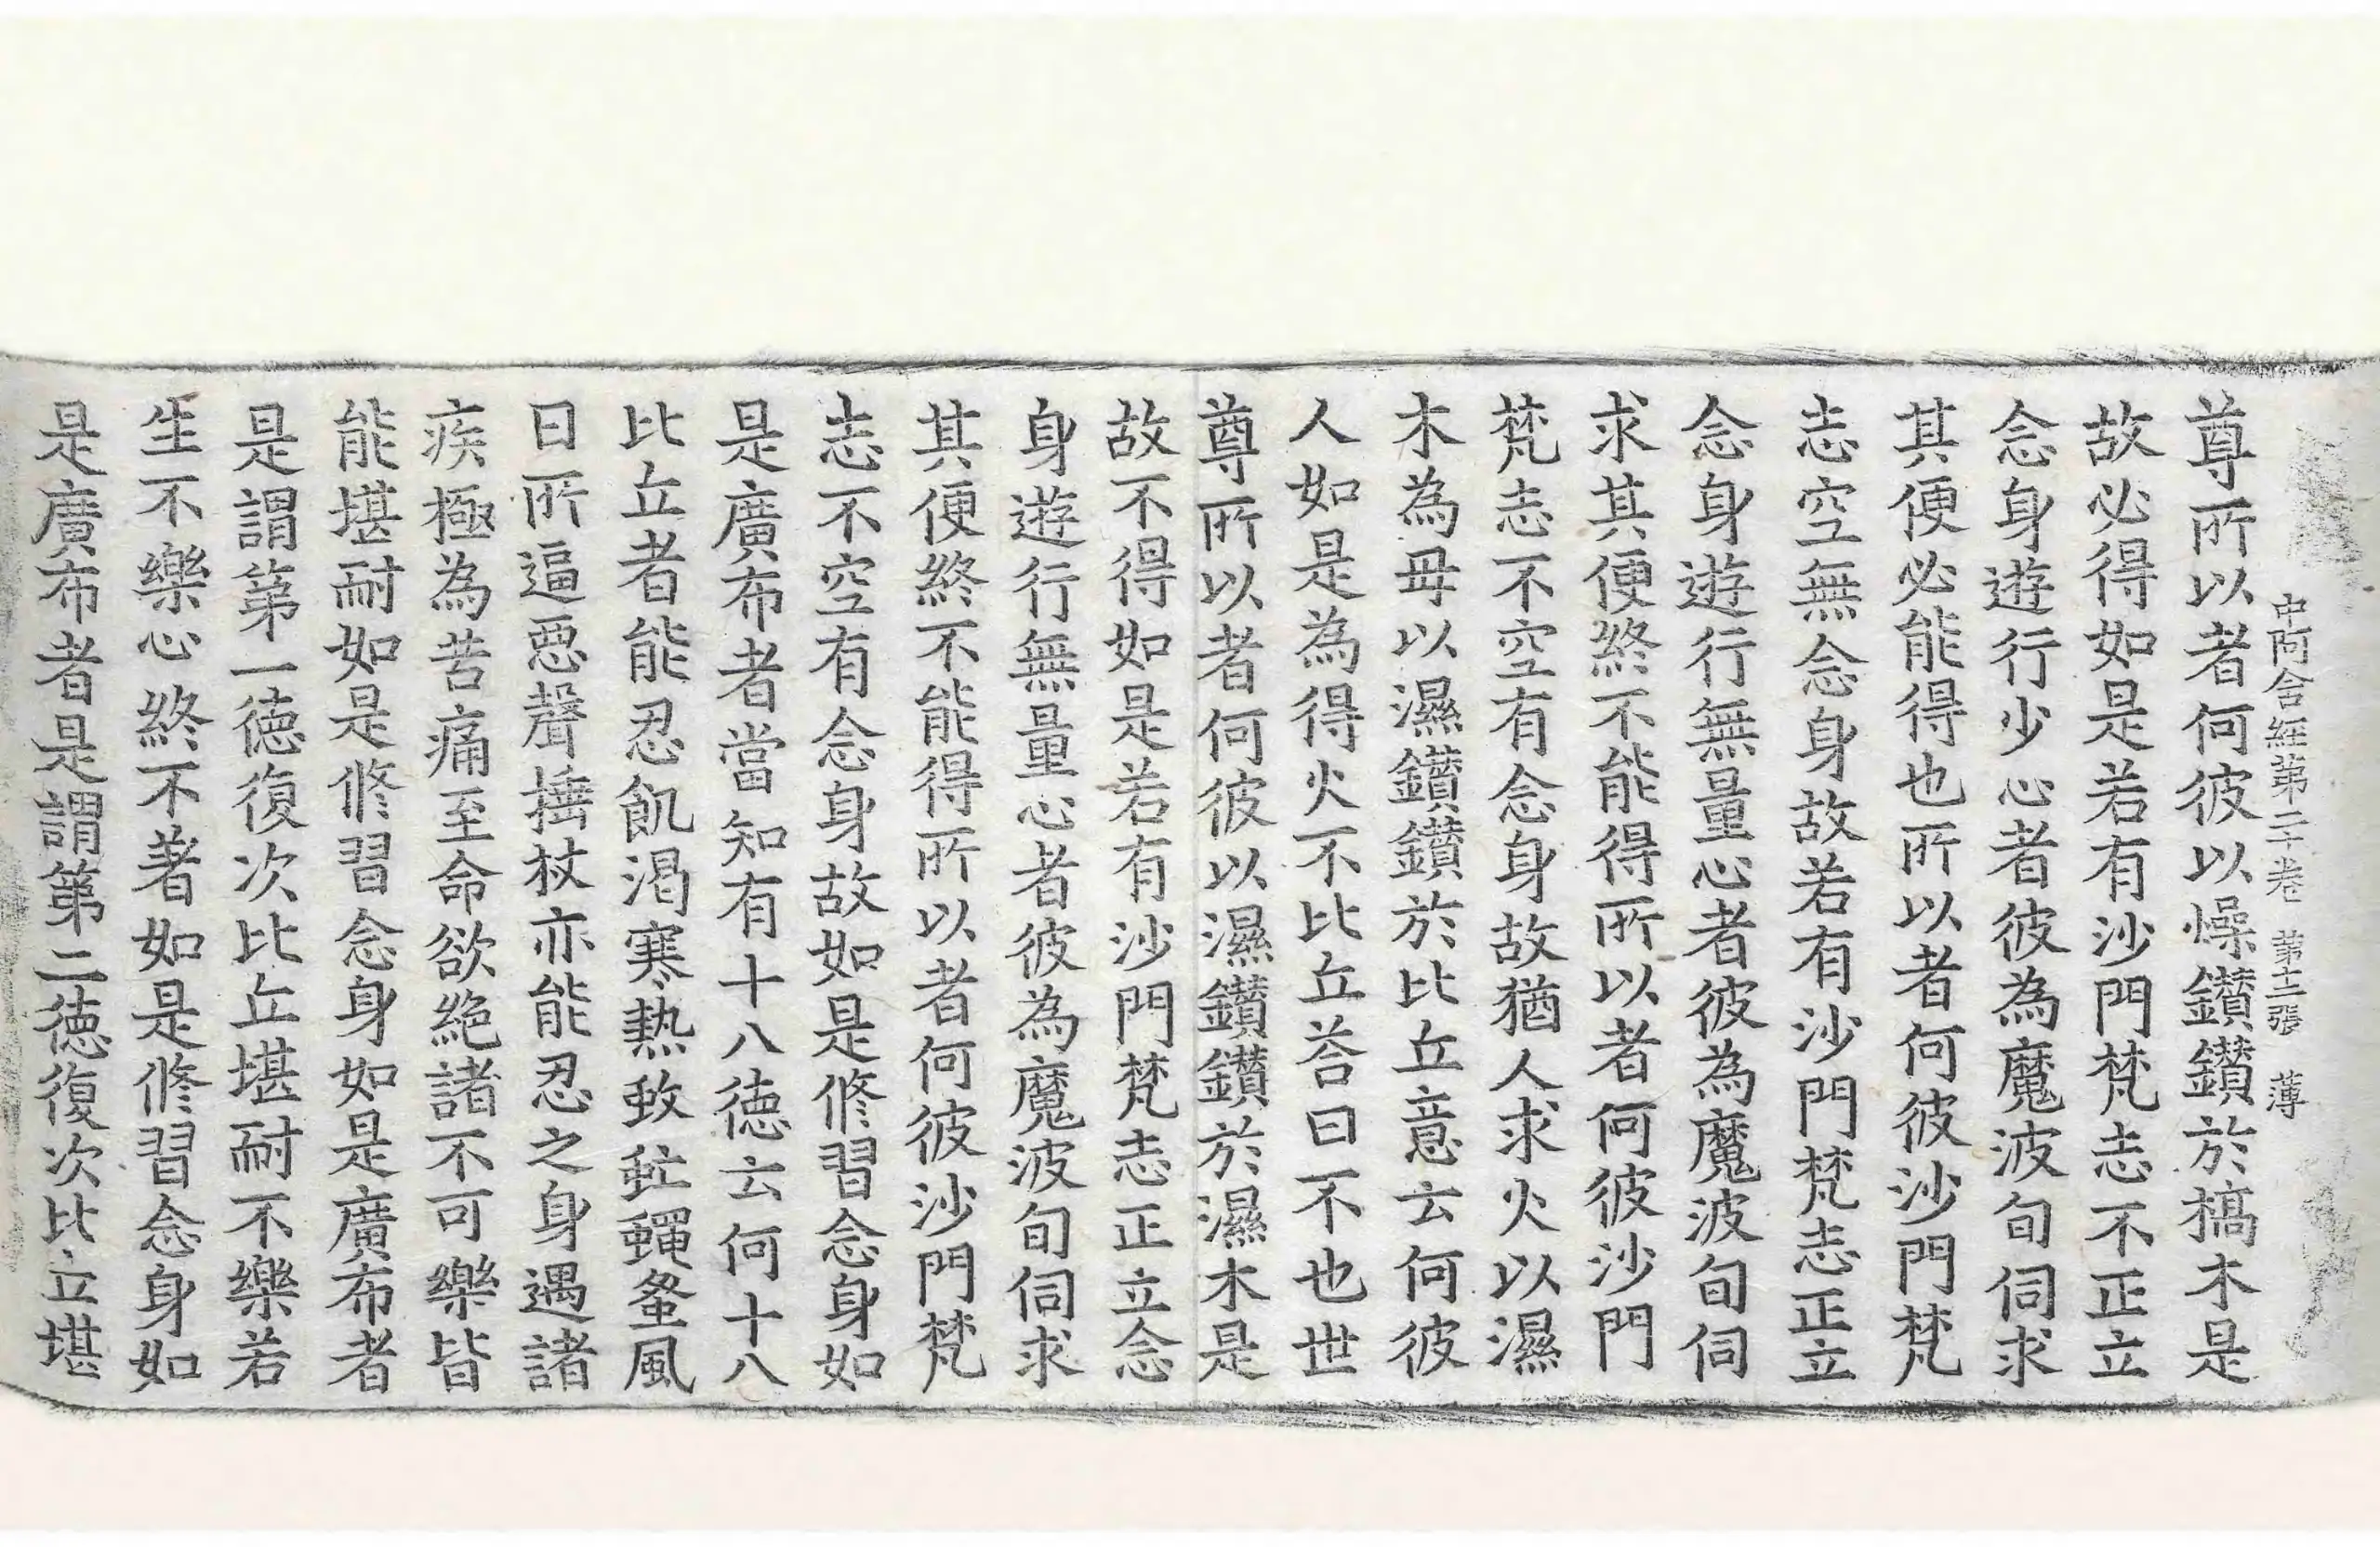 中阿含經第二十卷 第十二張 薄
尊所以者何彼以燥鑽鑽於槁木是
故必得如是若有沙門梵志不正立
念身遊行少心者彼為魔波旬伺求
其便必能得也所以者何彼沙門梵
志空無念身故若有沙門梵志正立
念身遊行無量心者彼為魔波旬伺
求其便終不能得所以者何彼沙門
梵志不空有念身故猶人求火以濕
木為母以濕鑽鑽於比丘意云何彼
人如是為得火不比丘荅曰不也世
尊所以者何彼以濕鑽鑽於濕木是
故不得如是若有沙門梵志正立念
身遊行無量心者彼為魔波旬伺求
其便終不能得所以者何彼沙門梵
志不空有念身故如是修習念身如
是廣布者當知有十八德云何十八
比丘者能忍飢渴寒熱蚊虻蠅蚤風
日所逼惡聲捶杖亦能忍之身遇諸
疾極為苦痛至命欲絕諸不可樂皆
能堪耐如是修習念身如是廣布者
是謂第一德復次比丘堪耐不樂若
生不樂心終不著如是修習念身如
是廣布者是謂第二德復次比丘堪